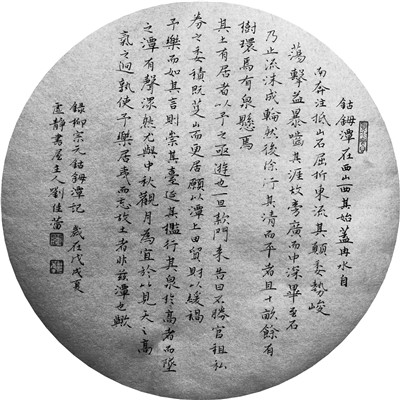 鈷鉧潭在西山西其始蓋冉水自
南奔注抵山石屈折東流其顛委勢峻
蕩擊益暴嚙其涯故旁廣而中深畢至石
乃止流沫成輪然後徐行其清而平者且十畝餘有
樹環焉有泉懸焉
其上有居者以予之亟遊也一旦款門來告曰不勝官租私
券之委積既芟山而更居願以潭上田貿財以緩禍
予樂而如其言則崇其臺延其檻行其泉於高者而墜
之潭有聲潀然尤與中秋觀月為宜於以見天之高
氣之迥孰使予樂居夷而忘故土者非茲潭也歟
錄柳宗元鈷鉧潭記 歲在戊戌夏
虛靜書屋主人劉佳蕾